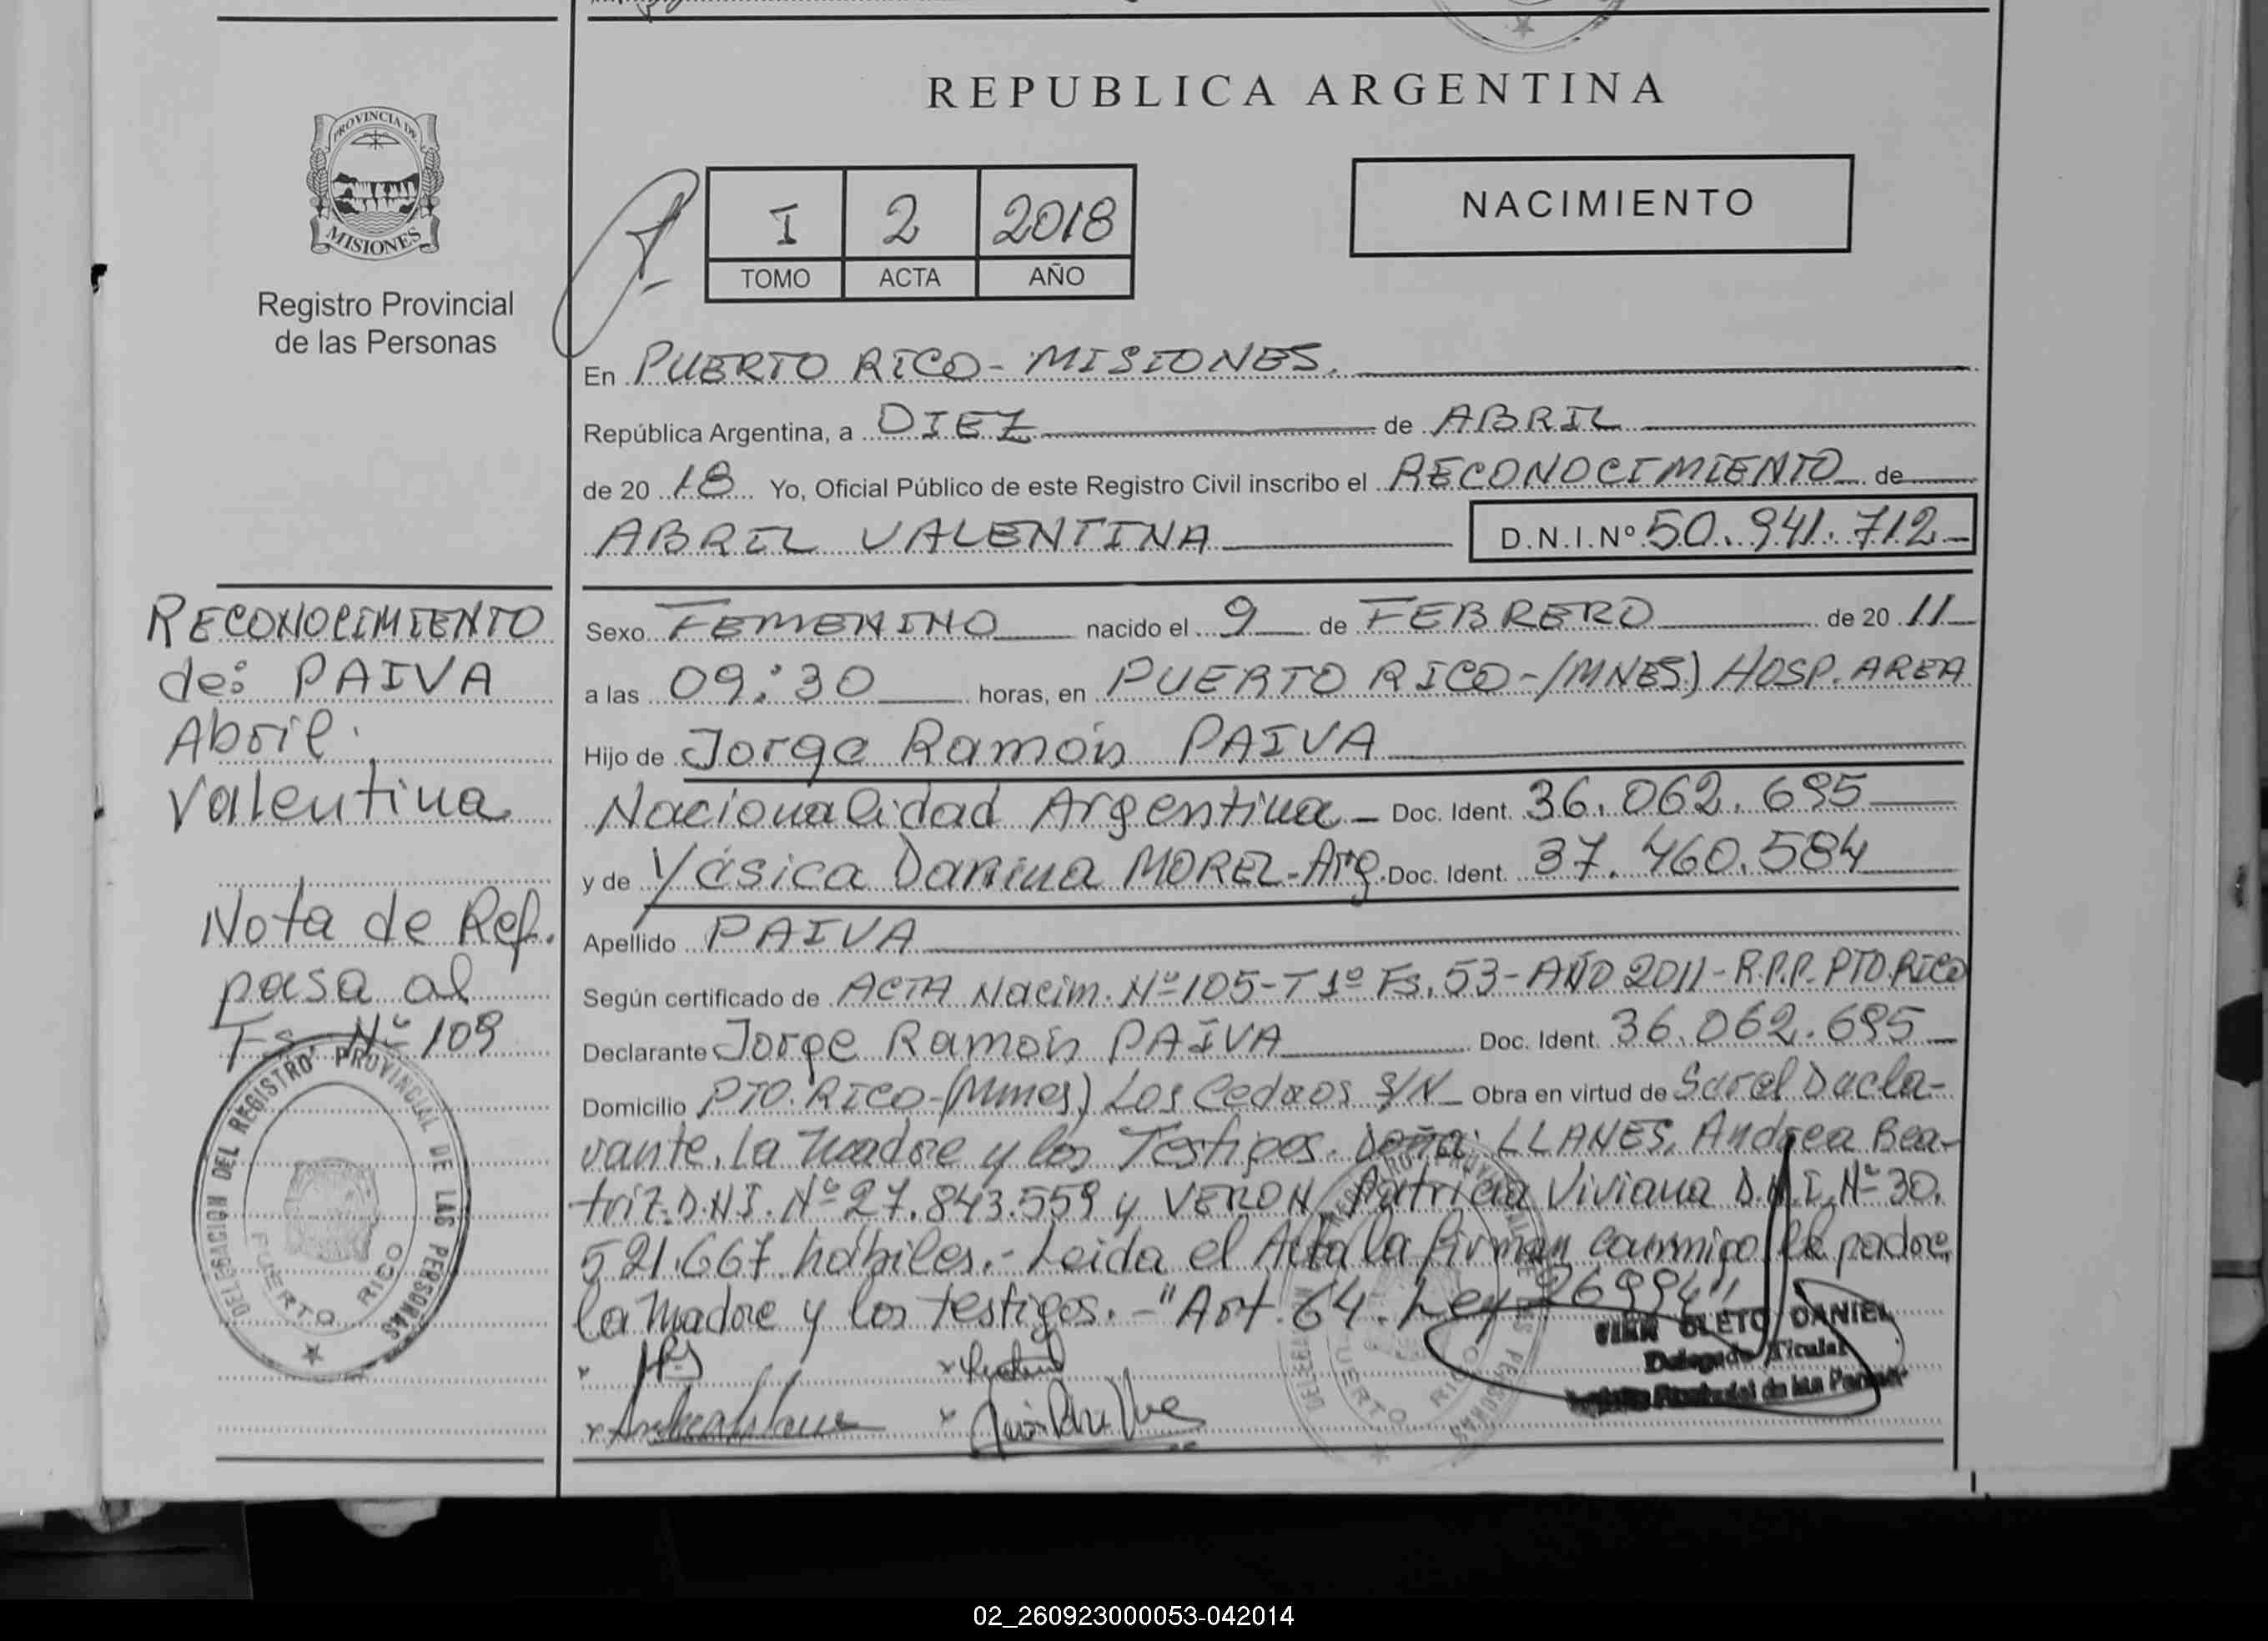 REPUBLICA ARGENTINA
PROVINCIA DE
MISIONES
Registro Provincial
de las Personas
I 2 2018
TOMO ACTA AÑO
NACIMIENTO
En PUERTO RICO - MISIONES.
República Argentina, a DIEZ de ABRIL
de 20 18 Yo, Oficial Público de este Registro Civil inscribo el RECONOCIMIENTO de
ABRIL VALENTINA D.N.I. Nº 50.941.712
RECONOCIMIENTO
de: PAIVA
Abril
Valentina
Nota de Ref.
pasa al
Fs Nº 109
DELEGACION DEL REGISTRO PROVINCIAL DE LAS PERSONAS
PUERTO RICO
Sexo FEMENINO nacido el 9 de FEBRERO de 20 11
a las 09:30 horas, en PUERTO RICO-(MNES) HOSP. AREA
Hijo de Jorge Ramón PAIVA
Nacionalidad Argentina - Doc. Ident. 36.062.695
y de Yésica Danina MOREL-Arg. Doc. Ident. 37.460.584
Apellido PAIVA
Según certificado de ACTA Nacim. Nº 105-T 1º Fs. 53-AÑO 2011-R.P.P. PTO.RICO
Declarante Jorge Ramón PAIVA Doc. Ident. 36.062.695
Domicilio PTO.RICO-(Mnes) Los Cedros S/N Obra en virtud de Ser el Decla-
rante, La Madre y los Testigos. Doña: LLANES, Andrea Bea-
triz D.N.I. Nº 27.843.559 y VERON, Patricia Viviana D.N.I. Nº 30.
521.667 hábiles.- Leida el Acta la firman conmigo el padre,
la Madre y los testigos. - "Art. 64. Ley 26994"
OLETO DANIEL
Delegado Titular
Registro Provincial de las Personas
02_260923000053-042014